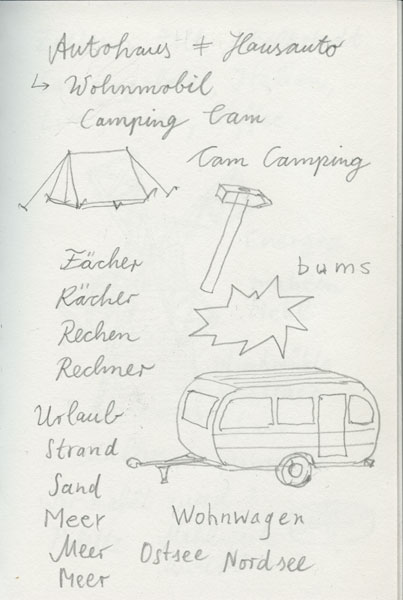 Autohaus ≠ Hausauto
↳ Wohnmobil
Camping Cam
Cam Camping
Fächer
bums
Rächer
Rechen
Rechner
Urlaub
Strand
Sand
Meer
Wohnwagen
Meer Ostsee Nordsee
Meer